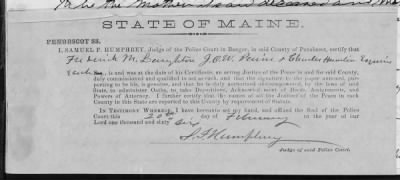 to be the Mother
STATE OF MAINE.
PENOBSCOT SS.
I, SAMUEL F. HUMPHREY, Judge of the Police Court in Bangor, in said County of Penobscot, certify that
Frederick M. Laughton J.O.W. Paine & Charles Hamlin Esquire
Each is, and was at the date of his Certificate, an acting Justice of the Peace in and for said County,
duly commissioned and qualified to act as such, and that the signature to the paper annexed, purporting
to be his, is genuine, and that he is duly authorized and empowered by the laws of said
State, to administer Oaths, to take Depositions, Acknowledgment of Deeds, Assignments, and
Powers of Attorney. I further certify that the names of all the Justices of the Peace in each
County in this State are reported to this County by requirement of Statute.
IN TESTIMONY WHEREOF, I have hereunto set my hand, and affixed the Seal of the Police
Court this 20th day of February in the year of our
Lord one thousand and sixty six
S. F. Humphrey
Judge of said Police Court.